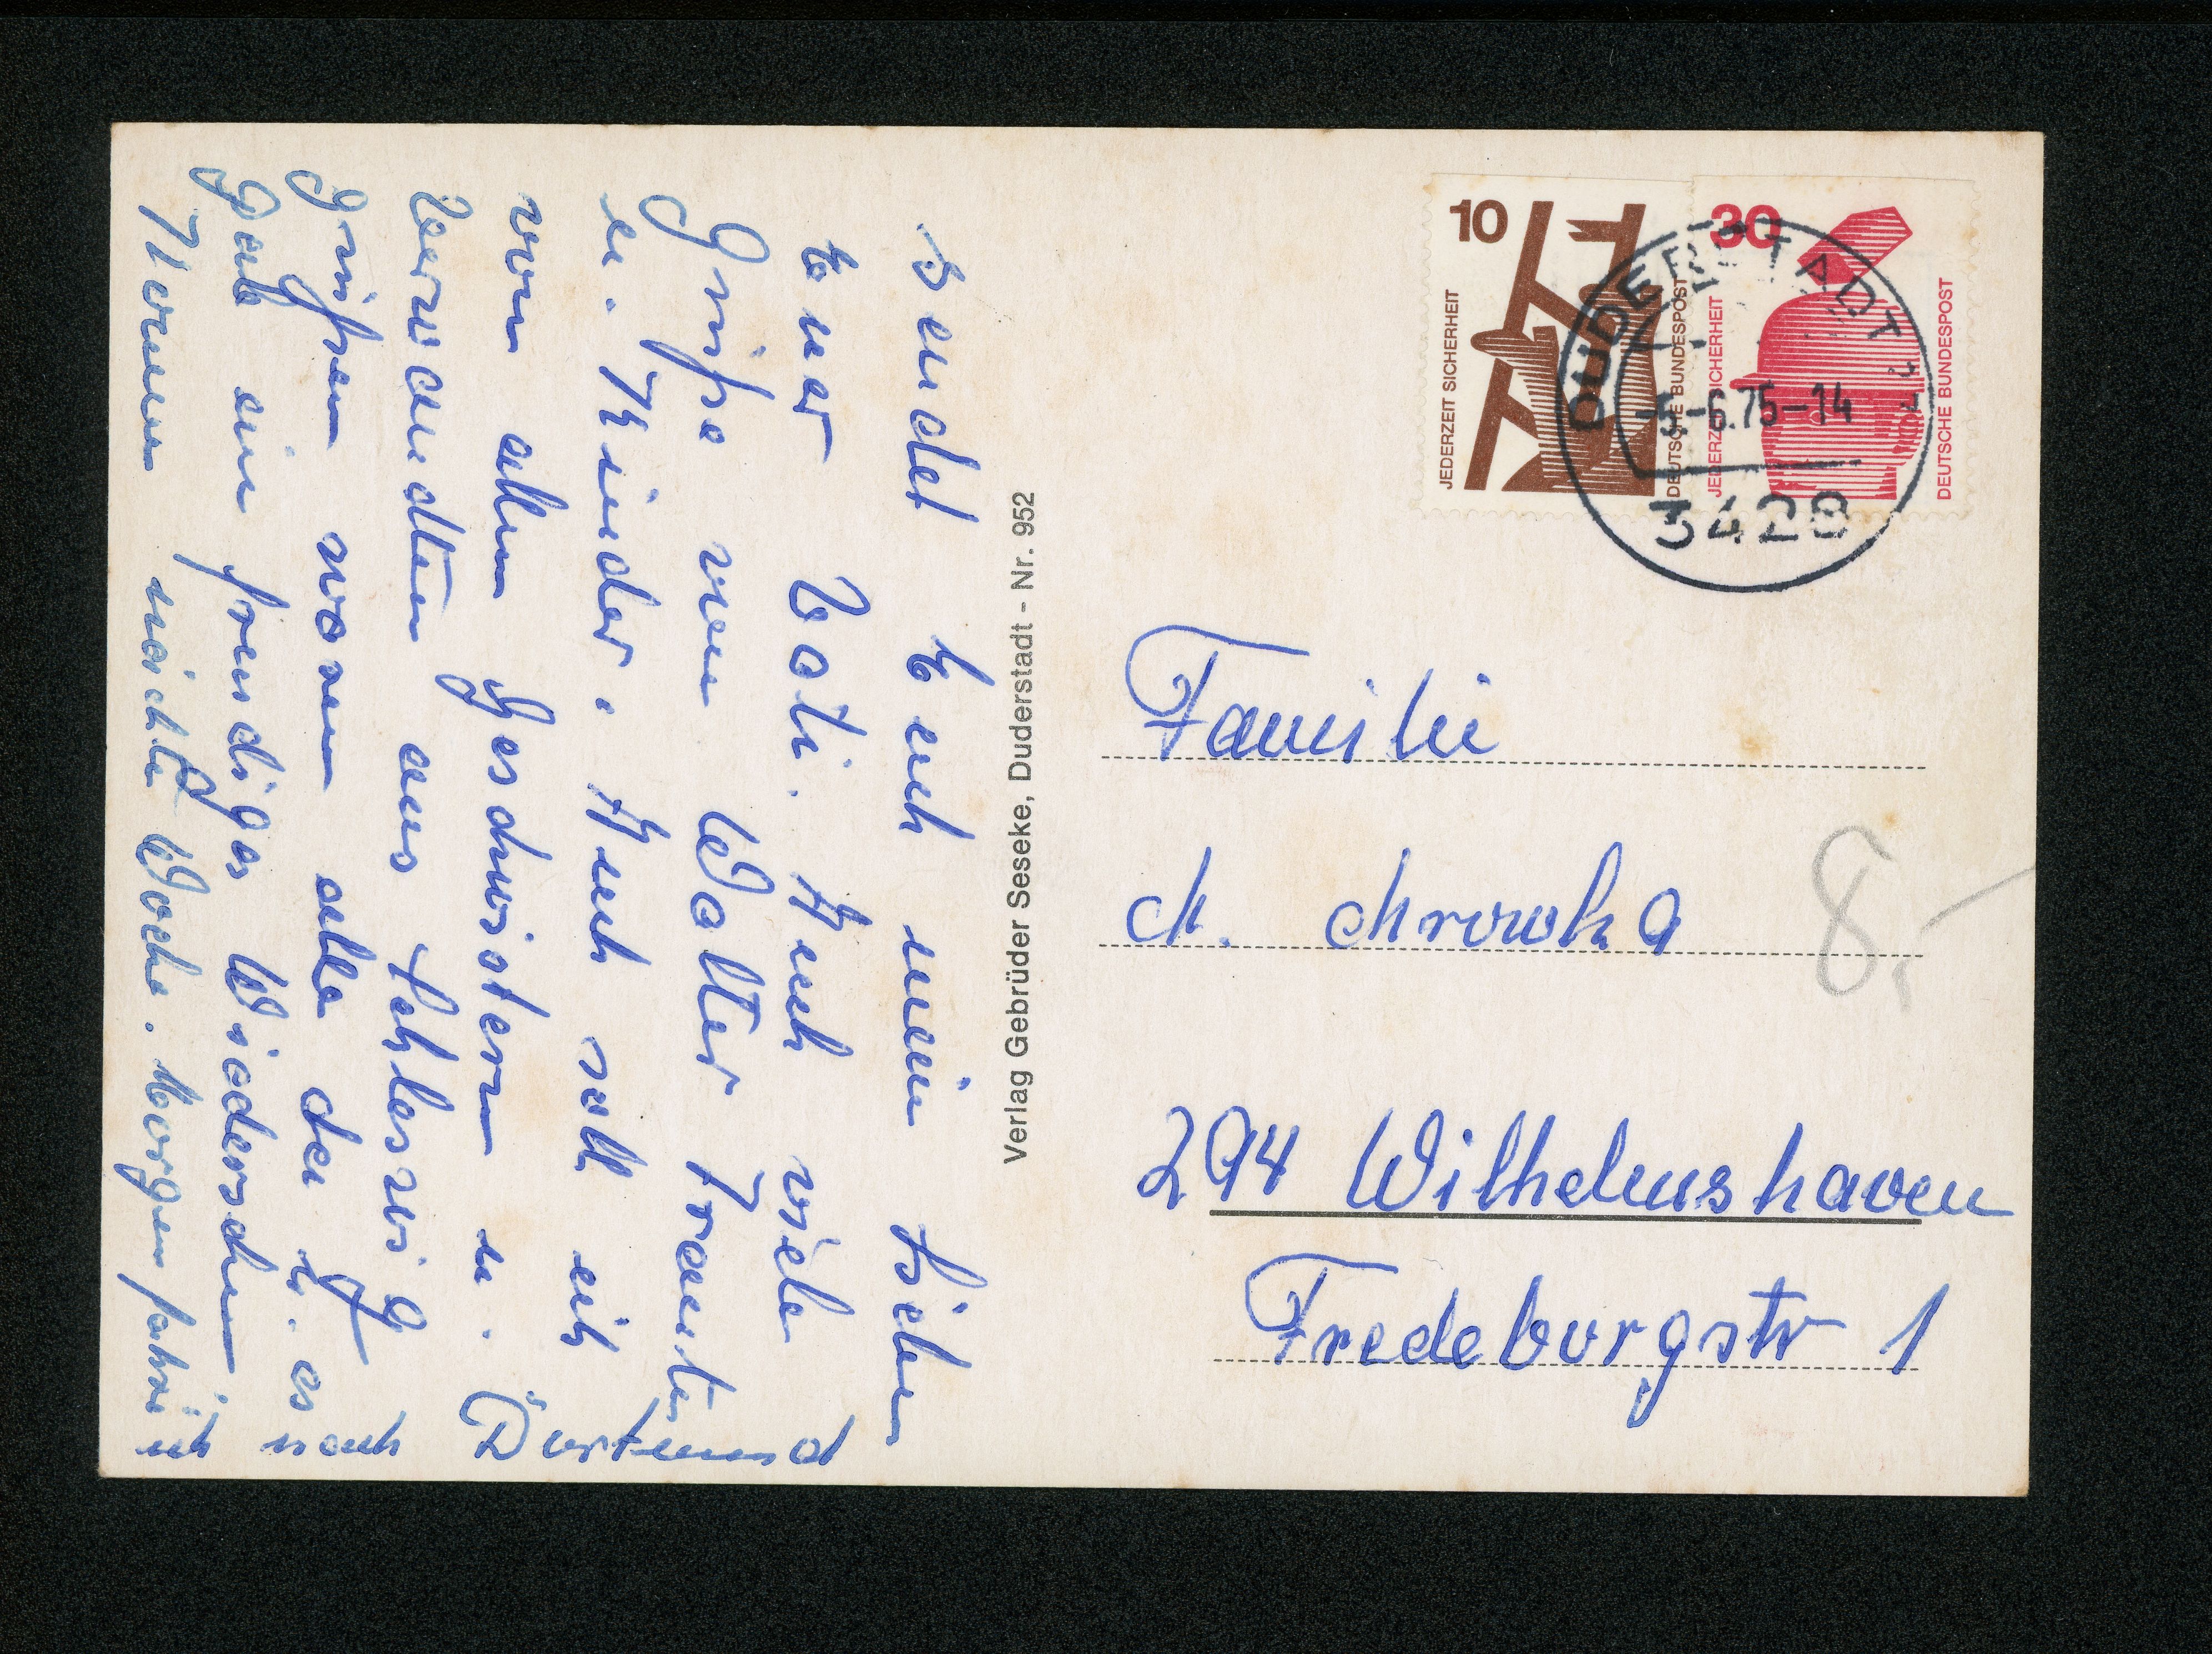 sendet Euch meine Lieben
Euer Vati. Auch viele
Grüße von Walter Traute
u. Kinder. Auch soll ich
von allen Geschwistern u.
Verwandten aus Schleswig
grüßen waren alle da u. es
gab ein freudiges Wiedersehen
Komme nächste Woche. Morgen fahre
ich nach Dortmund
Verlag Gebrüder Seseke, Duderstadt - Nr. 952
10
JEDERZEIT SICHERHEIT
DEUTSCHE BUNDESPOST
30
JEDERZEIT SICHERHEIT
DEUTSCHE BUNDESPOST
DUDERSTADT 1
-5.-6.75-14
3428
Familie
M. Mrowka
294 Wilhelmshaven
Fredeburgstr 1
8,-